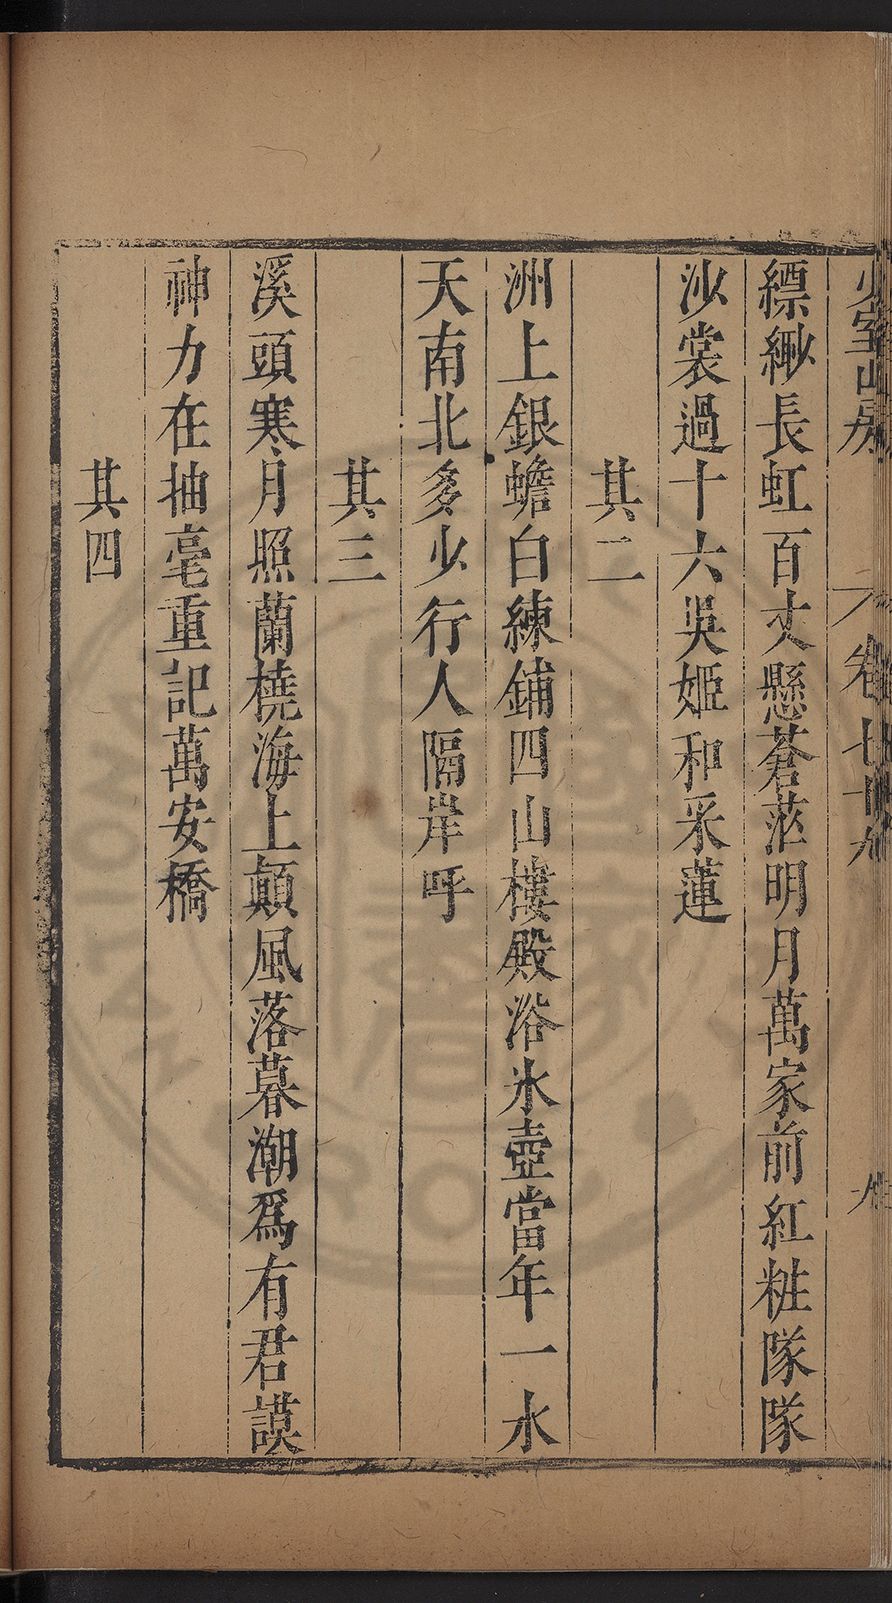 少室山房 卷七十九
縹緲長虹百丈懸蒼茫明月萬家前紅粧隊隊
沙裳過十六吳姬和采蓮
其二
洲上銀蟾白練鋪四山樓殿浴氷壺當年一水
天南北多少行人隔岸呼
其三
溪頭寒月照蘭橈海上顛風落暮潮爲有君謨
神力在抽毫重記萬安橋
其四